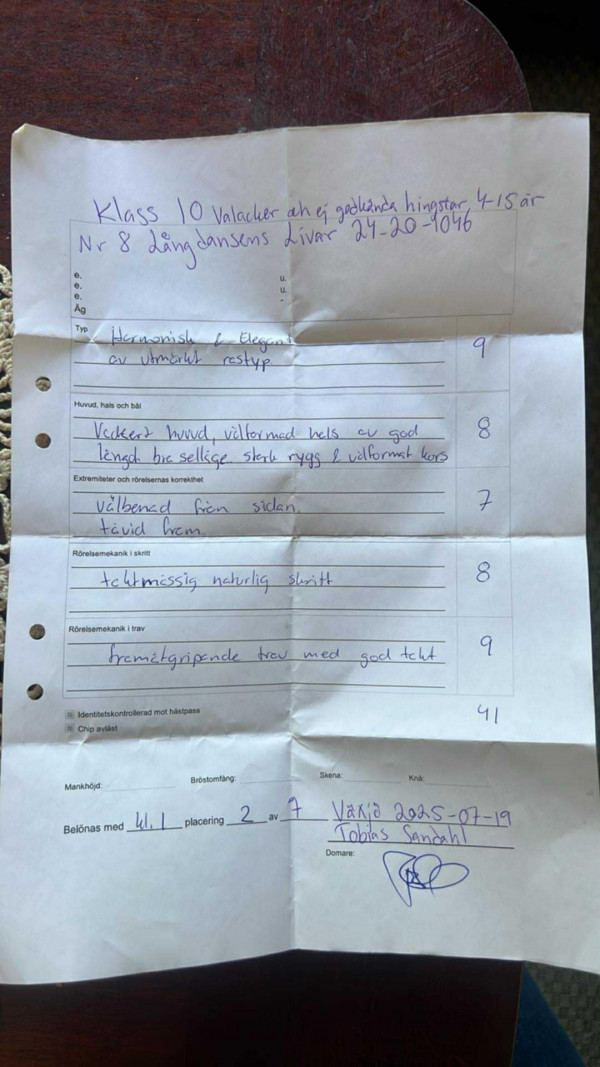 Klass 10 Valacker och ej godkända hingstar 4-15 år
Nr 8 Långdansens Livar 24-20-1046
e. u.
e. u.
e. -
Äg
Typ Harmonisk & Elegant
av utmärkt rastyp. 9
Huvud, hals och bål
Vackert huvud, välformad hals av god 8
längd bra selläge. stark rygg & välformat kors
Extremiteter och rörelsernas korrekthet
Välbenad från sidan. 7
tåvid fram
Rörelsemekanik i skritt
taktmässig naturlig skritt 8
Rörelsemekanik i trav
framåtgripande trav med god takt 9
Identitetskontrollerad mot hästpass 41
Chip avläst
Mankhöjd: Bröstomfång: Skena: Knä:
Belönas med kl. 1 placering 2 av 7 Växjö 2025-07-19
Tobias Sandahl
Domare: